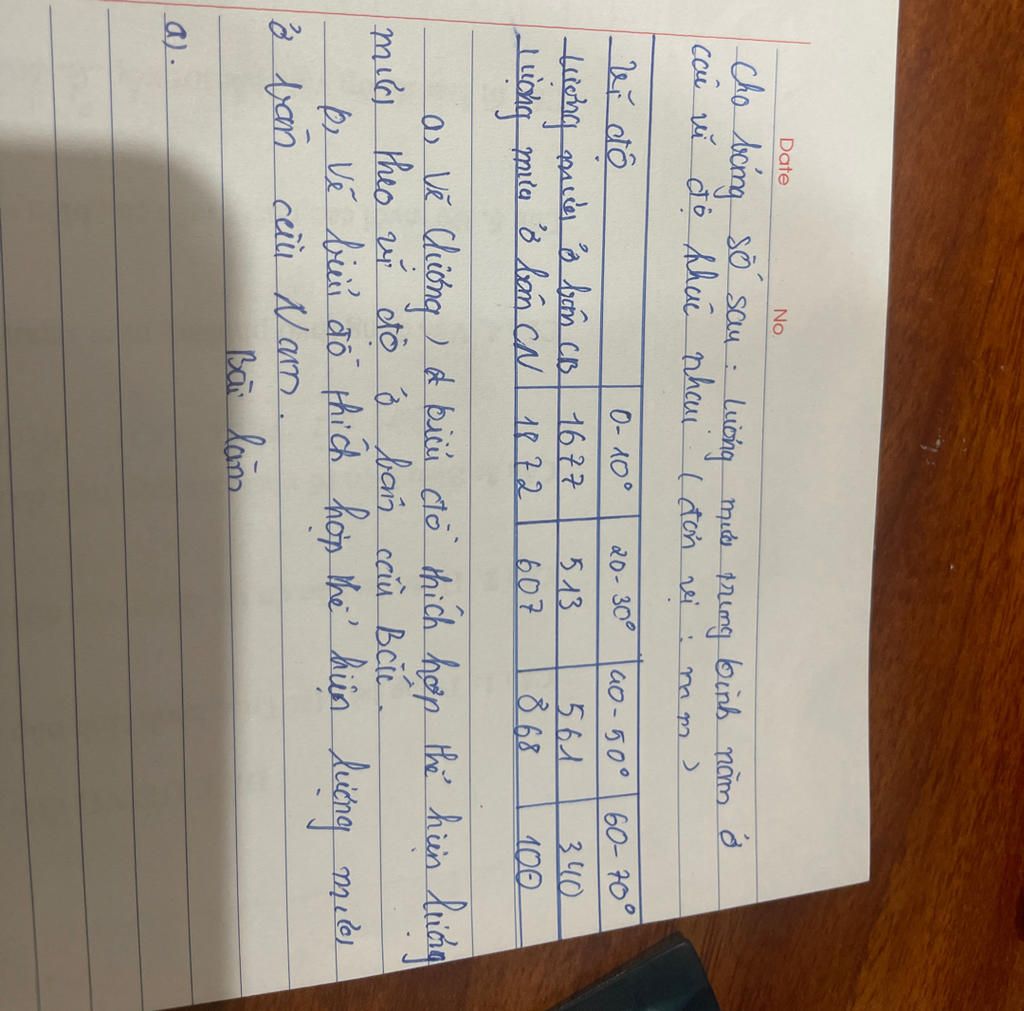 Date No.
Cho bảng số sau: lượng mưa trung bình năm ở
các vĩ độ khác nhau. (đơn vị: mm)
Vĩ độ 0-10° 20-30° 40-50° 60-70°
Lượng mưa ở bán CB 1677 513 561 340
Lượng mưa ở bán CN 1872 607 868 100
a, Vẽ biểu đồ thích hợp thể hiện lượng
mưa theo vĩ độ ở bán cầu Bắc.
b, Vẽ biểu đồ thích hợp thể hiện lượng mưa
ở bán cầu Nam.
Bài làm
a).